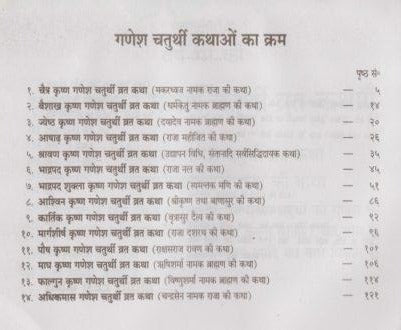 गणेश चतुर्थी कथाओं का क्रम
पृष्ठ सं॰
१. चैत्र कृष्ण गणेश चतुर्थी व्रत कथा (मकरध्वज नामक राजा की कथा) — ५
२. वैशाख कृष्ण गणेश चतुर्थी व्रत कथा (धर्मकेतु नामक ब्राह्मण की कथा) — १४
३. ज्येष्ठ कृष्ण गणेश चतुर्थी व्रत कथा (दयादेव नामक ब्राह्मण की कथा) — २०
४. आषाढ़ कृष्ण गणेश चतुर्थी व्रत कथा (राजा महीजित की कथा) — २६
५. श्रावण कृष्ण गणेश चतुर्थी व्रत कथा (उद्यापन विधि, संतानादि सर्वसिद्धिदायक कथा) — ३५
६. भाद्रपद कृष्ण गणेश चतुर्थी व्रत कथा (राजा नल की कथा) — ४५
७. भाद्रपद शुक्ला कृष्ण गणेश चतुर्थी व्रत कथा (स्यमन्तक मणि की कथा) — ५१
८. आश्विन कृष्ण गणेश चतुर्थी व्रत कथा (श्रीकृष्ण तथा बाणासुर की कथा) — ८६
९. कार्तिक कृष्ण गणेश चतुर्थी व्रत कथा (वृत्रासुर दैत्य की कथा) — ९२
१०. मार्गशीर्ष कृष्ण गणेश चतुर्थी व्रत कथा (राजा दशरथ की कथा) — ९६
११. पौष कृष्ण गणेश चतुर्थी व्रत कथा (राक्षसराज रावण की कथा) — १०१
१२. माघ कृष्ण गणेश चतुर्थी व्रत कथा (ऋषिशर्मा नामक ब्राह्मण की कथा) — १०६
१३. फाल्गुन कृष्ण गणेश चतुर्थी व्रत कथा (विष्णुशर्मा नामक ब्राह्मण की कथा) — ११४
१४. अधिकमास गणेश चतुर्थी व्रत कथा (चन्द्रसेन नामक राजा की कथा) — १२१